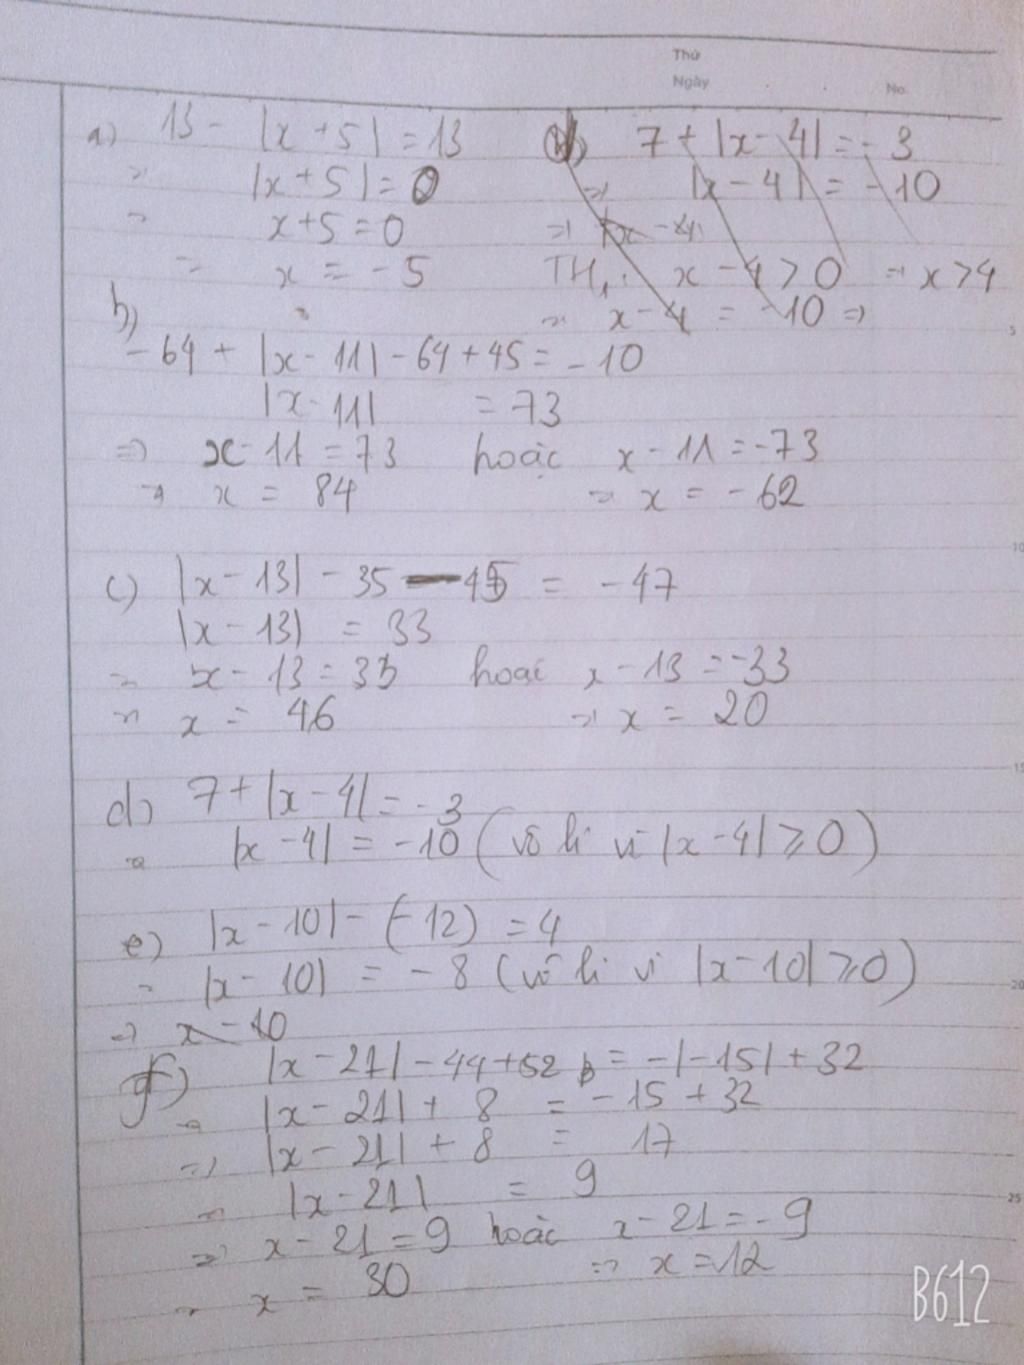 Thứ
Ngày
No.
a) 13 - |x + 5| = 13
⇒ |x + 5| = 0
⇒ x + 5 = 0
⇒ x = -5
b) 7 + |x - 4| = -3
⇒ |x - 4| = -10
⇒ |x - 4|
TH₁: x - 4 > 0 ⇒ x > 4
⇒ x - 4 = -10 ⇒
b)
-64 + |x - 11| - 64 + 45 = -10
|x - 11| = 73
⇒ x - 11 = 73 hoặc x - 11 = -73
⇒ x = 84 ⇒ x = -62
c) |x - 13| - 35 - 45 = -47
|x - 13| = 33
⇒ x - 13 = 33 hoặc x - 13 = -33
⇒ x = 46 ⇒ x = 20
d) 7 + |x - 4| = -3
⇒ |x - 4| = -10 (vô lí vì |x - 4| ≥ 0)
e) |x - 10| - (-12) = 4
⇒ |x - 10| = -8 (vô lí vì |x - 10| ≥ 0)
⇒ x - 10
f) |x - 21| - 44 + 52 = -|-15| + 32
⇒ |x - 21| + 8 = -15 + 32
⇒ |x - 21| + 8 = 17
⇒ |x - 21| = 9
⇒ x - 21 = 9 hoặc x - 21 = -9
⇒ x = 30 ⇒ x = 12
5
10
15
20
25
B612